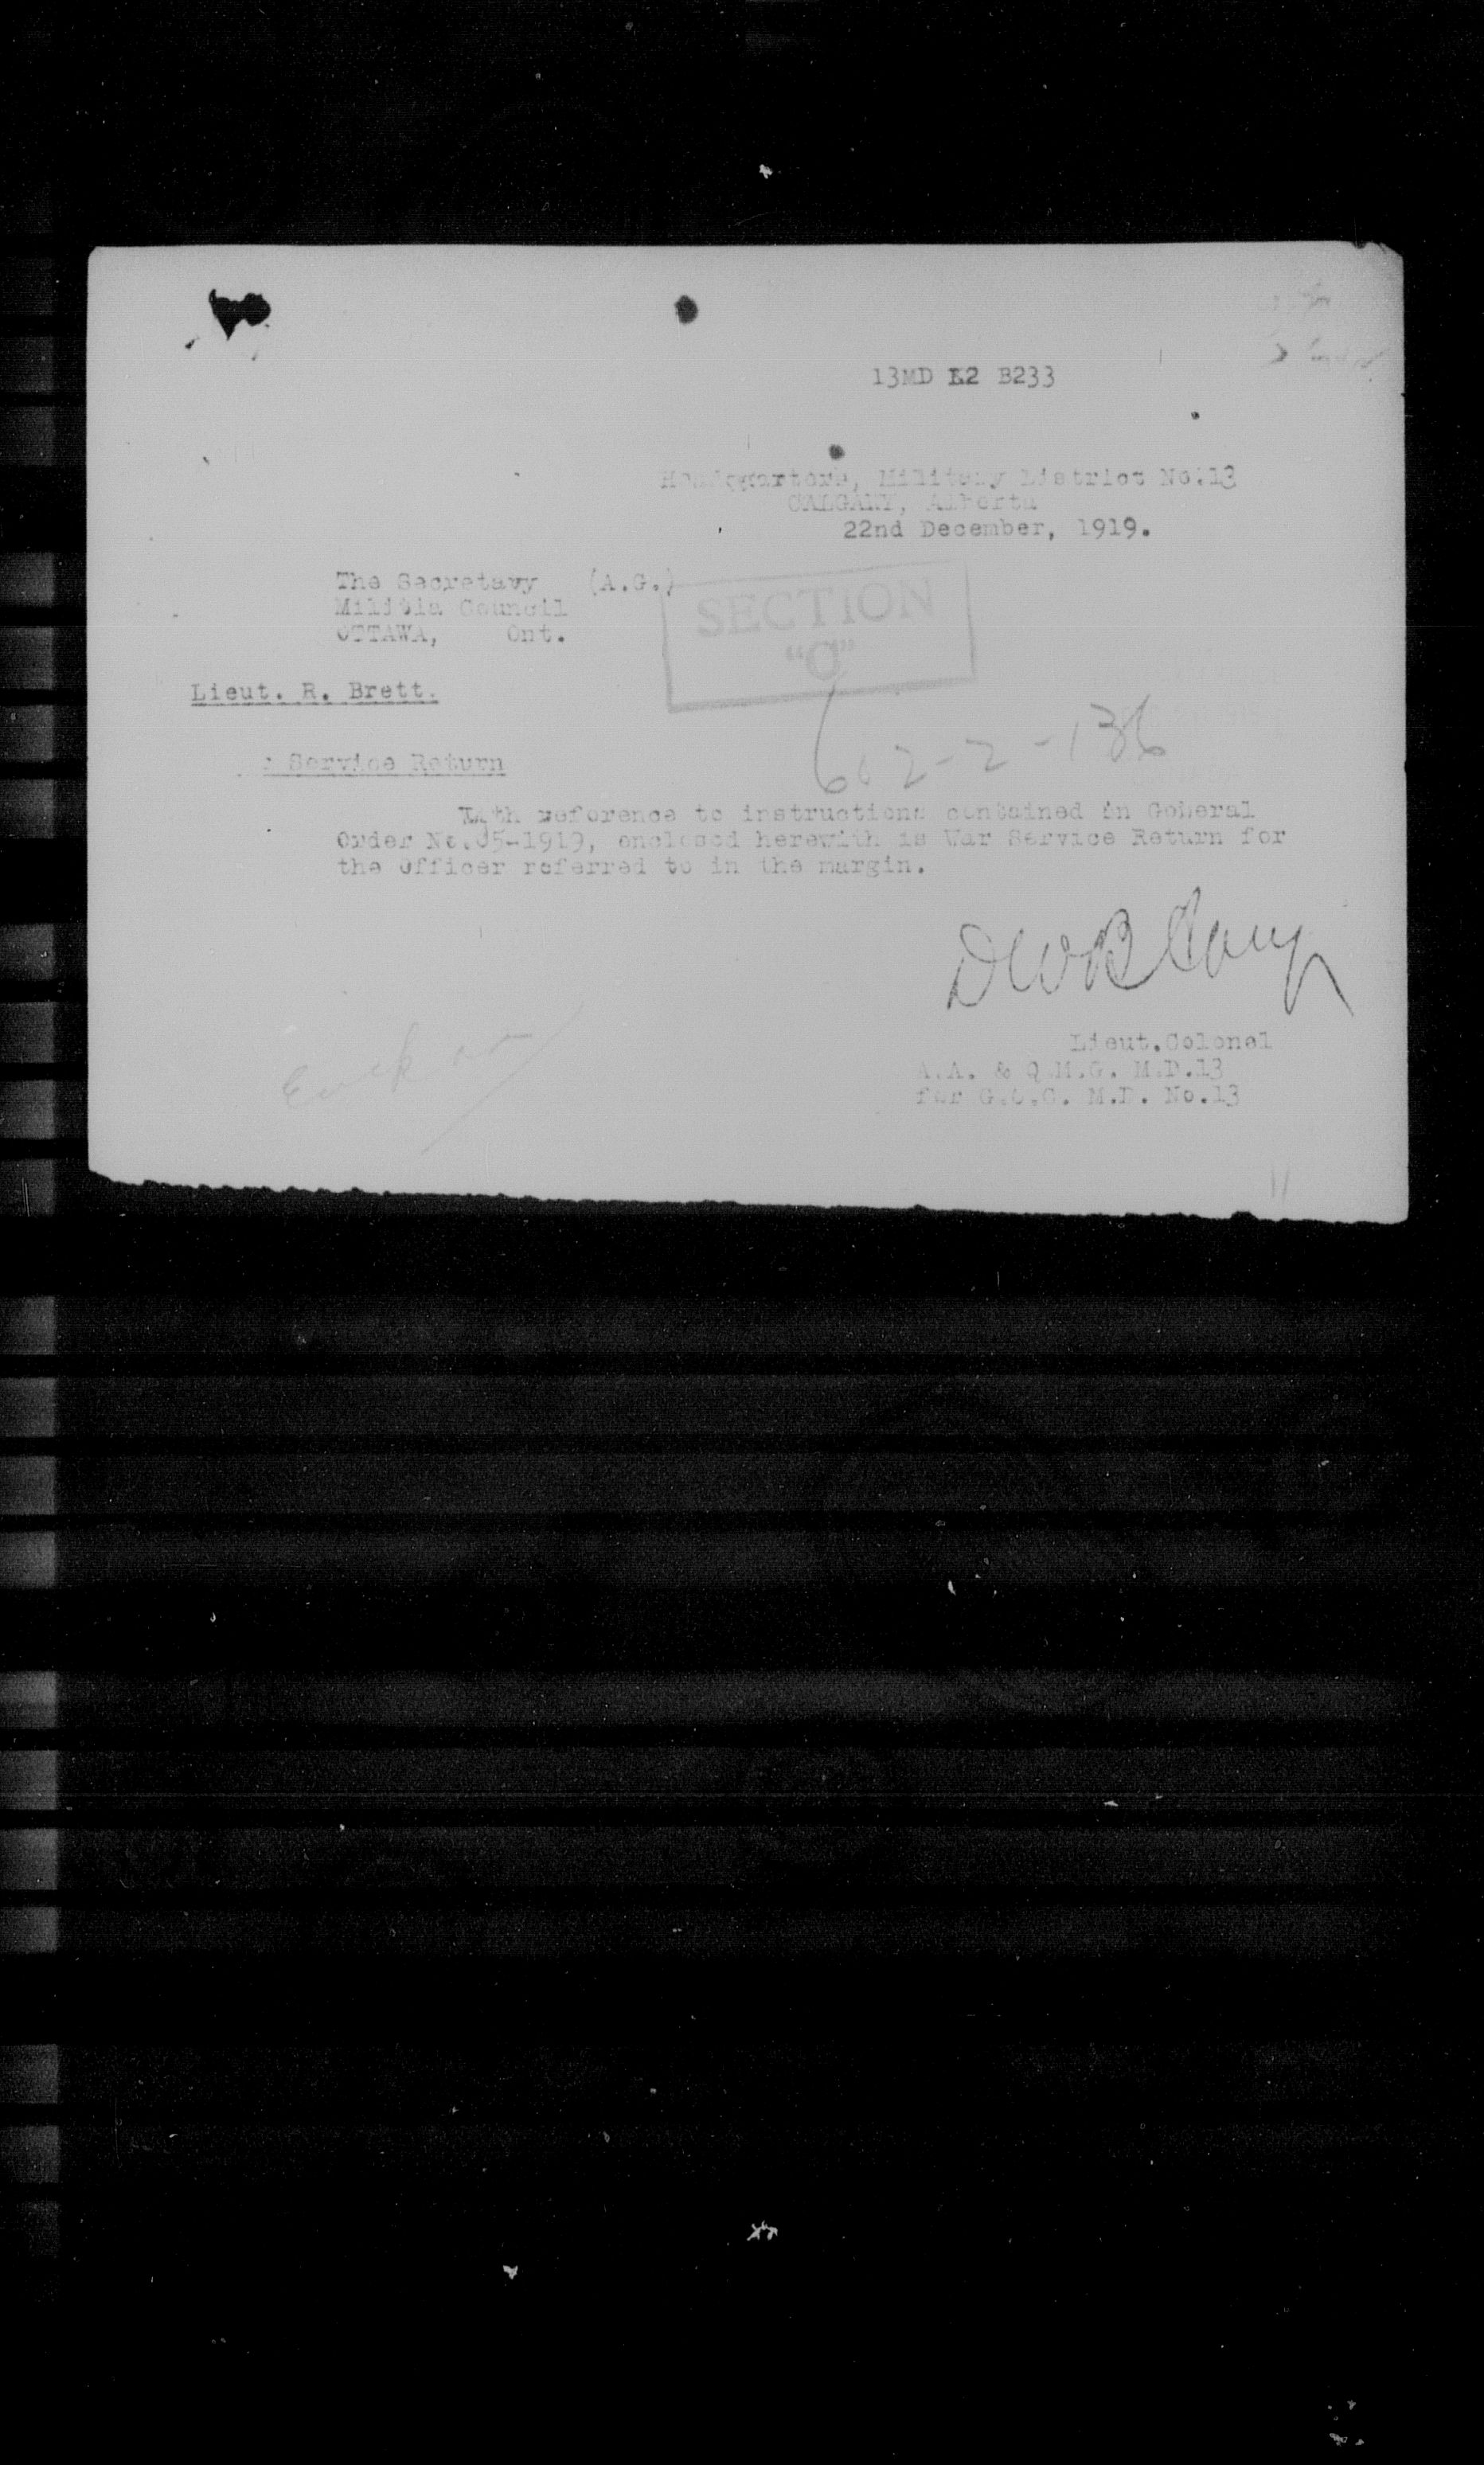 13MD L2 B233
Headqqarters, Military District No.13
CALGARY, Alberta
22nd December, 1919.
The Secretary (A.G.)
Militia Council
OTTAWA, Ont.
SECTION
"C"
Lieut. R. Brett.
602-2-136
Service Return
With reference to instructions contained in General
Order No. 1919, enclosed herewith is War Service Return for
the Officer referred to in the margin.
Lieut.Colonel
A.A. & Q.M.G. M.D.13
for G.O.C. M.D. No.13
11